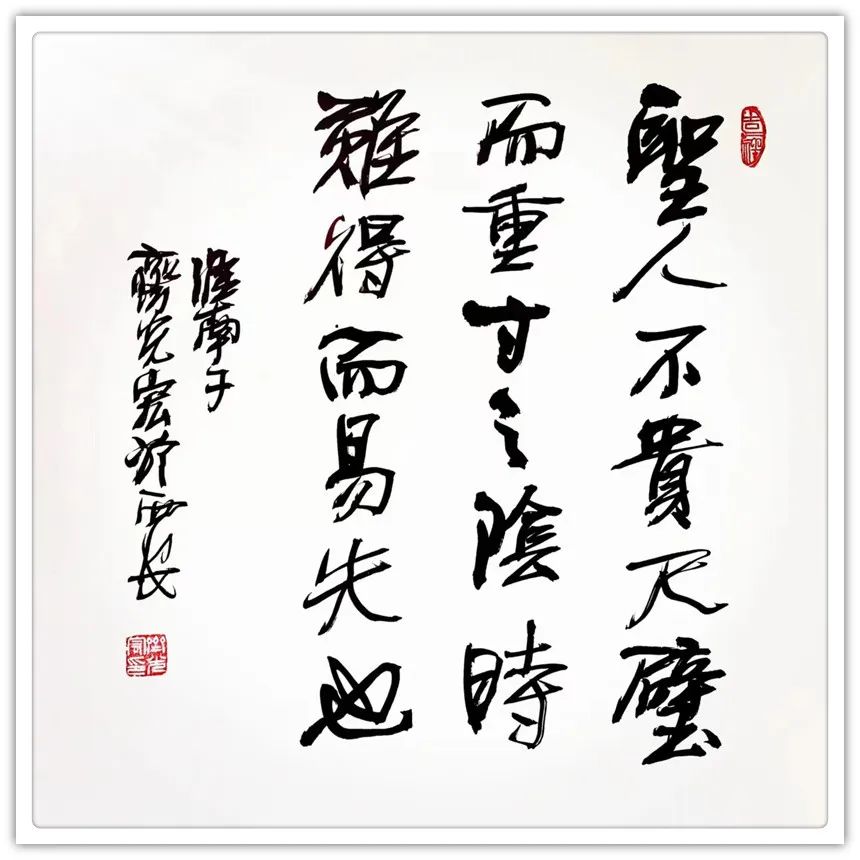 聖人不貴尺璧
而重寸之陰時
難得而易失也
淮南子
光宏於西長
吉祥